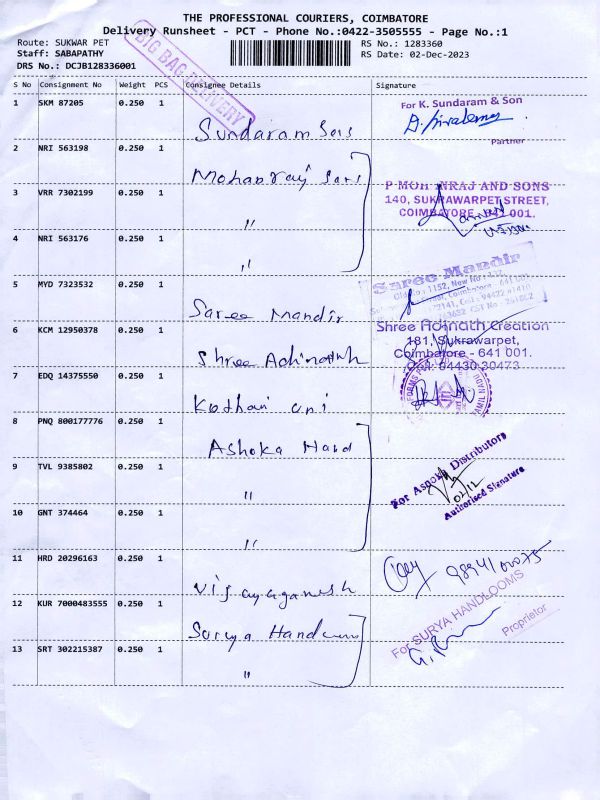 THE PROFESSIONAL COURIERS, COIMBATORE
Delivery Runsheet - PCT - Phone No.:0422-3505555 - Page No.:1
Route: SUKWAR PET
RS No.: 1283360
Staff: SABAPATHY
RS Date: 02-Dec-2023
DRS No.: DCJB128336001
BIG BAG DELIVERY
S No Consignment No Weight PCS Consignee Details Signature
1 SKM 87205 0.250 1 Sundaram Sons
For K. Sundaram & Son
Partner
2 NRI 563198 0.250 1 Mohanraj Sons
3 VRR 7302199 0.250 1 "
P MOHANRAJ AND SONS
140, SUKRAWARPET STREET,
COIMBATORE - 641 001.
4 NRI 563176 0.250 1 "
5 MYD 7323532 0.250 1 Saree Mandir
Saree Mandir
6 KCM 12950378 0.250 1 Shree Adhinathh
Shree Adinath Creation
181, Sukrawarpet,
Coimbatore - 641 001.
Cell: 94430 30473
7 EDQ 14375550 0.250 1 Kothari uni
8 PNQ 800177776 0.250 1 Ashoka Hand
9 TVL 9385802 0.250 1 "
For Aspoka Distributors
02/12
Authorised Signature
10 GNT 374464 0.250 1 "
11 HRD 20296163 0.250 1 Vijayaganesh
12 KUR 7000483555 0.250 1 Surya Handloom
For SURYA HANDLOOMS
Proprietor
13 SRT 302215387 0.250 1 "